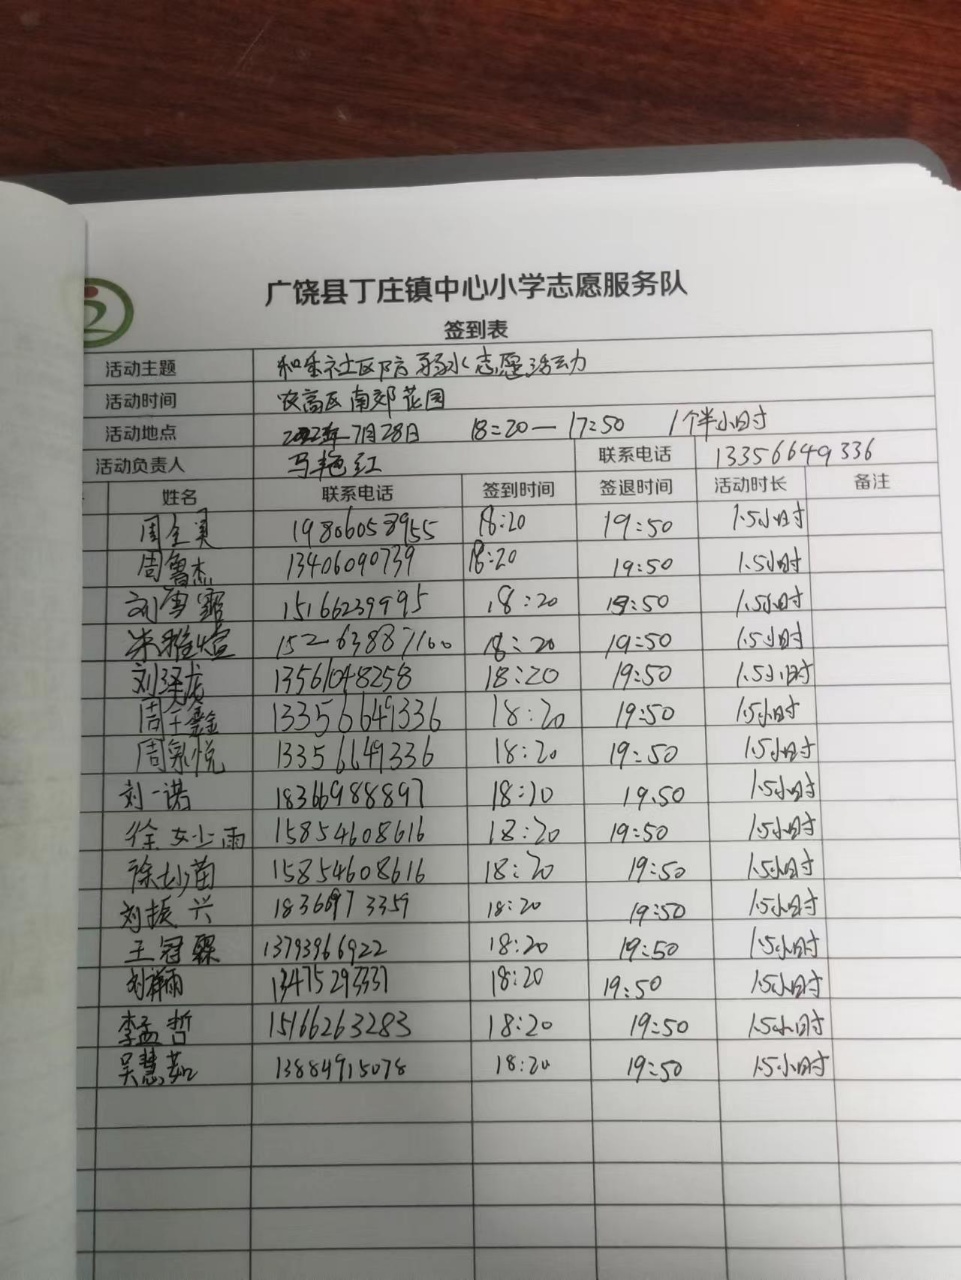 广饶县丁庄镇中心小学志愿服务队
签到表
活动主题 和乐社区防溺水志愿活动
活动时间 农高区南郊花园
活动地点 2022年7月28日 18:20—17:50 1个半小时
活动负责人 马艳红 联系电话 13356649336
姓名 联系电话 签到时间 签退时间 活动时长 备注
周全昊 19806058955 18:20 19:50 1.5小时
周鲁杰 13406090739 18:20 19:50 1.5小时
刘雪露 15166239995 18:20 19:50 1.5小时
朱雅煊 152-63887100 18:20 19:50 1.5小时
刘泽龙 13561048258 18:20 19:50 1.5小时
周子鑫 13356649336 18:20 19:50 1.5小时
周泉悦 13356649336 18:20 19:50 1.5小时
刘一诺 18366988897 18:20 19.50 1.5小时
徐妙雨 15854608616 18:20 19:50 1.5小时
徐妙苗 15854608616 18:20 19:50 1.5小时
刘振兴 18366973359 18:20 19:50 1.5小时
王冠霖 13793966922 18:20 19:50 1.5小时
刘雨 13475293331 18:20 19:50 1.5小时
李孟哲 15166263283 18:20 19:50 1.5小时
吴慧茹 13884915078 18:20 19:50 1.5小时